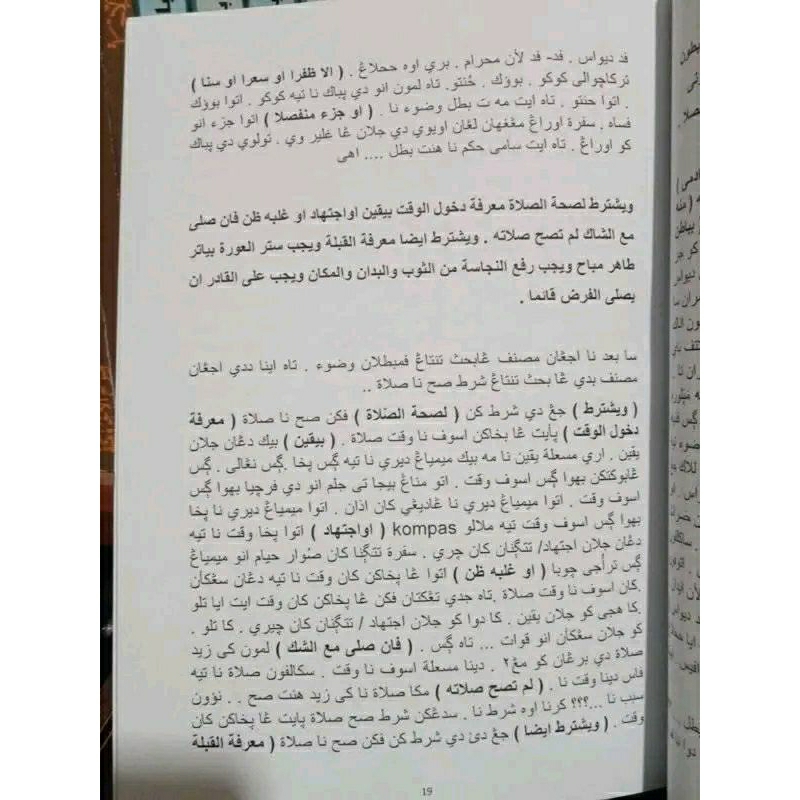 فد ديواس . فد- فد لأن محرام . بري اوه ححلاڠ . ( الا ظفرا او سعرا او سنا )
تركاچوالى كوكو . بوؤك . ݢنتو. تاه لمون انو دي پباك نا تيه كوكو . اتوا بوؤك
. اتوا حنتو . تاه ايت مه ت بطل وضوء نا . ( او جزء منفصلا ) اتوا جزء انو
فساه . سفرة اوراڠ مڠڠهان لڠان اوبوي دي جلان ڠا غلير وي . تولوي دي پباك
كو اوراڠ . تاه ايت سامى حكم نا هنت بطل .... اهى
ويشترط لصحة الصلاة معرفة دخول الوقت بيقين اواجتهاد او غلبه ظن فان صلى
مع الشاك لم تصح صلاته . ويشترط ايضا معرفة القبلة ويجب ستر العورة بياتر
طاهر مباح ويجب رفع النجاسة من الثوب والبدان والمكان ويجب على القادر ان
يصلى الفرض قائما .
سا بعد نا اجڠان مصنف ڠابحث تنتاڠ فمبطلان وضوء . تاه اينا ددي اجڠان
مصنف بدي ڠا بحث تنتاڠ شرط صح نا صلاة ..
( ويشترط ) جڠ دي شرط كن ( لصحة الصلاة ) فكن صح نا صلاة ( معرفة
دخول الوقت ) پايت ڠا بخاكن اسوف نا وقت صلاة . ( بيقين ) بيك دڠان جلان
يقين . اري مسعلة يقين نا مه بيك ميمياڠ ديري نا تيه ݢس پخا .ݢس نڠالى . ݢس
ڠابوكتكن بهوا ݢس اسوف وقت . اتو مناڠ بيجا تى جلم انو دي فرچيا بهوا ݢس
اسوف وقت . اتوا ميمياڠ ديري نا ڠاديڠي كان اذان . اتوا ميمياڠ ديري نا پخا
بهوا ݢس اسوف وقت تيه ملالو kompas ( اواجتهاد ) اتوا پخا وقت نا تيه
دڠان جلان اجتهاد/ تتݢنان كان چري . سفرة تتݢنا كان صوار حيام انو ميمياڠ
ݢس تراجى چوبا ( او غلبه ظن ) اتوا ڠا پخاكن كان وقت نا تيه دڠان سڠكان
.كان اسوف نا وقت صلاة .تاه جدي تڠكتان فكن ڠا پخاكن كان وقت ايت ايا تلو
.كا هجى كو جلان يقين . كا دوا كو جلان اجتهاد / تتݢنان كان چيري . كا تلو .
كو جلان سڠكان انو قوات ... تاه ݢس . ( فان صلى مع الشك ) لمون كى زيد
صلاة دي برڠان كو مڠ٢ . دينا مسعلة اسوف نا وقت . سكالفون صلاة نا تيه
فاس دينا وقت نا . ( لم تصح صلاته ) مكا صلاة نا كى زيد هنت صح . . نؤون
سبب نا ...؟؟؟ كرنا اوه شرط نا . سدڠكن شرط صح صلاة پايت ڠا پخاكن كان
وقت . ( ويشترط ايضا ) جڠ دئ دي شرط كن فكن صح نا صلاة ( معرفة القبلة
19